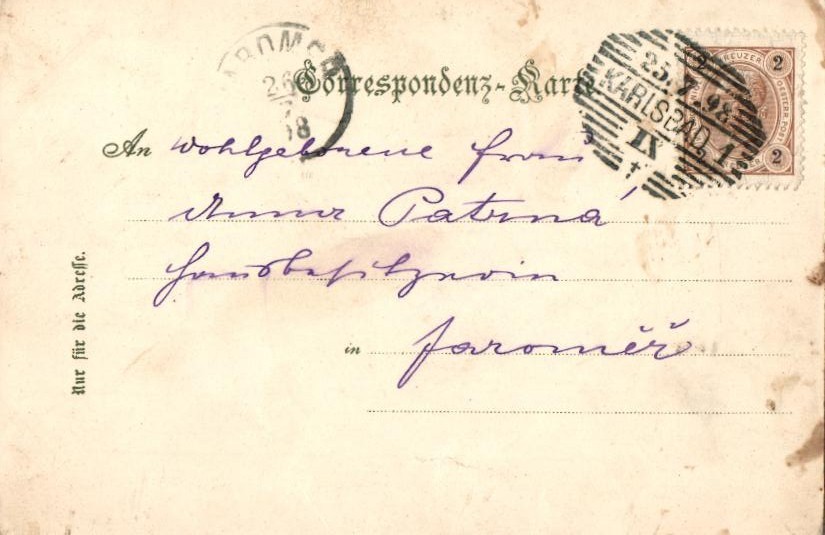 Correspondenz-Karte.
25. 7. 98
KARLSBAD 1
IX
2 KREUZER 2
2
An Wohlgeborene Frau
Anna Patrná
Hausbesitzerin
in Jaroměř
Nur für die Adresse.